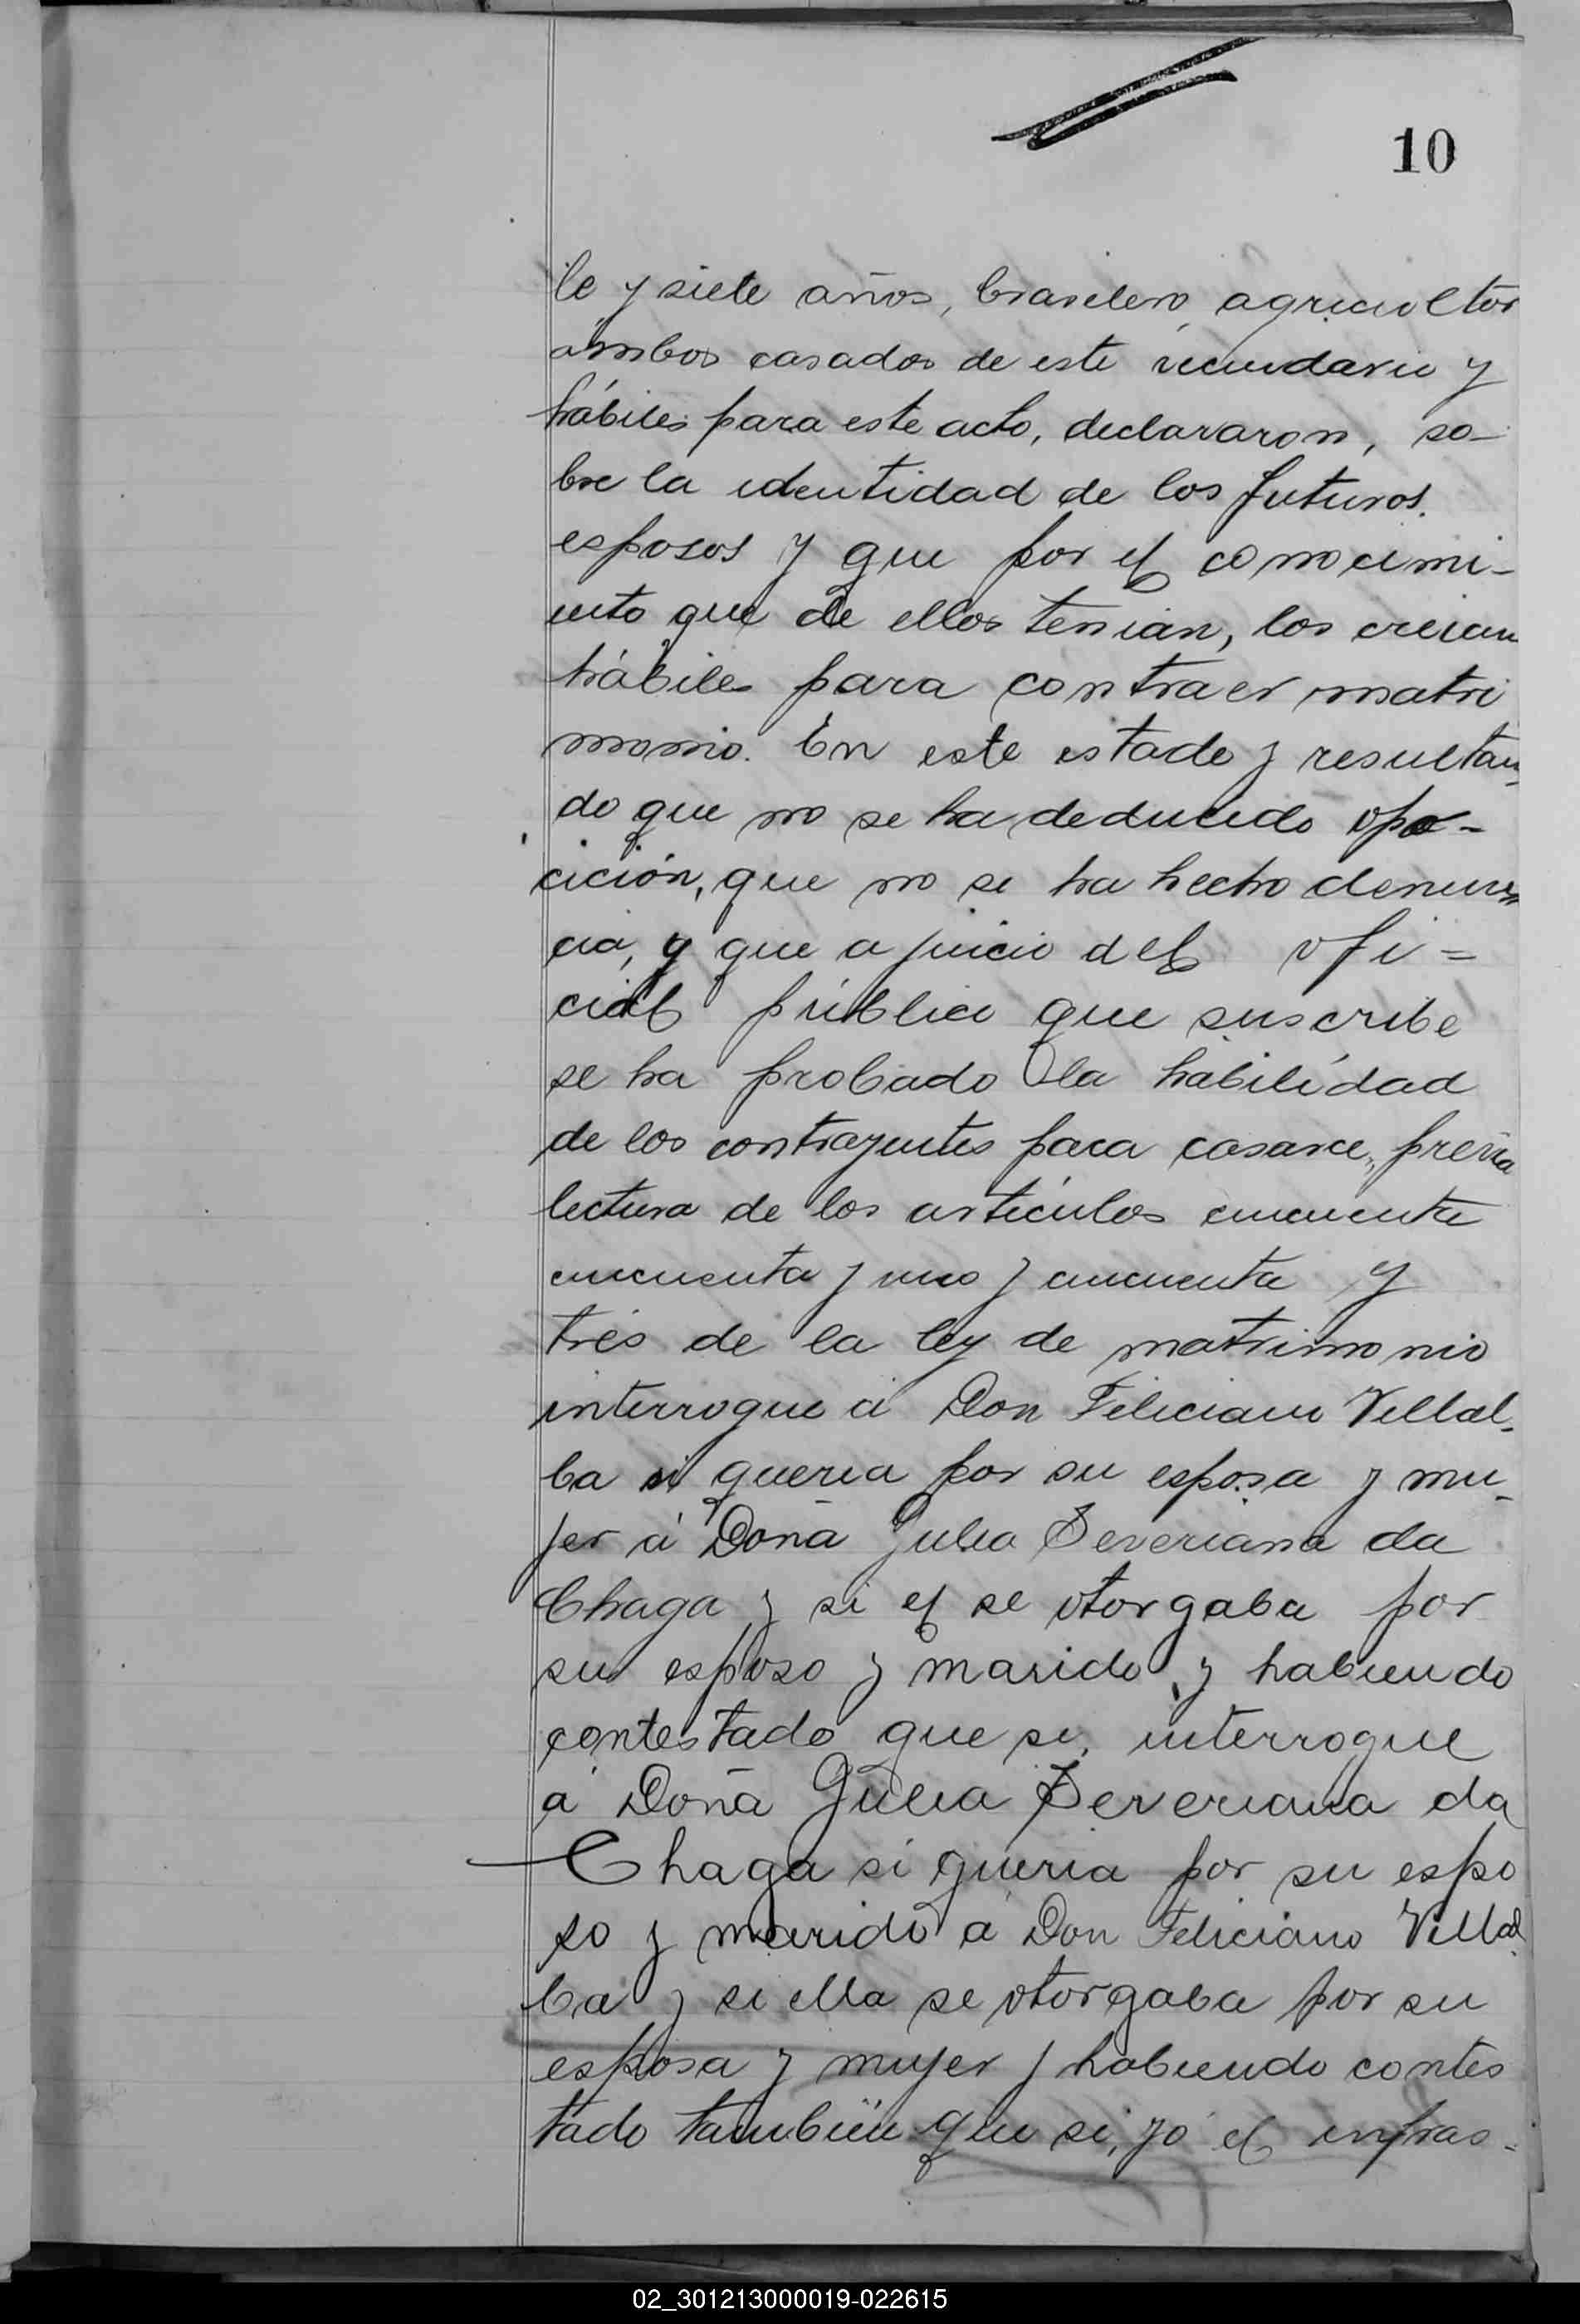 10
te y siete años, brasilero, agricultor
ambos casados de este vecindario y
hábiles para este acto, declararon, so-
bre la identidad de los futuros
esposos y que por el conocimi-
ento que de ellos tenian, los creian
hábiles para contraer matri
monio. En este estado y resultan
do que no se ha deducido opo-
cición, que no se ha hecho denun
cia, y que a juicio del ofi=
cial público que suscribe
se ha probado la habilidad
de los contrayentes para casarce, previa
lectura de los artículos cincuenta
cincuenta y uno y cincuenta y
tres de la ley de matrimonio
interrogue á Don Feliciano Villal-
ba si queria por su esposa y mu-
jer á Doña Julia Severiana da
Chaga y si el se otorgaba por
su esposo y marido, y habiendo
contestado que si, interrogue
á Doña Julia Severiana da
Chaga si queria por su espo
so y marido á Don Feliciano Villal
ba y si ella se otorgaba por su
esposa y mujer y habiendo contes
tado tambien que si, yo el infras-
02_301213000019-022615